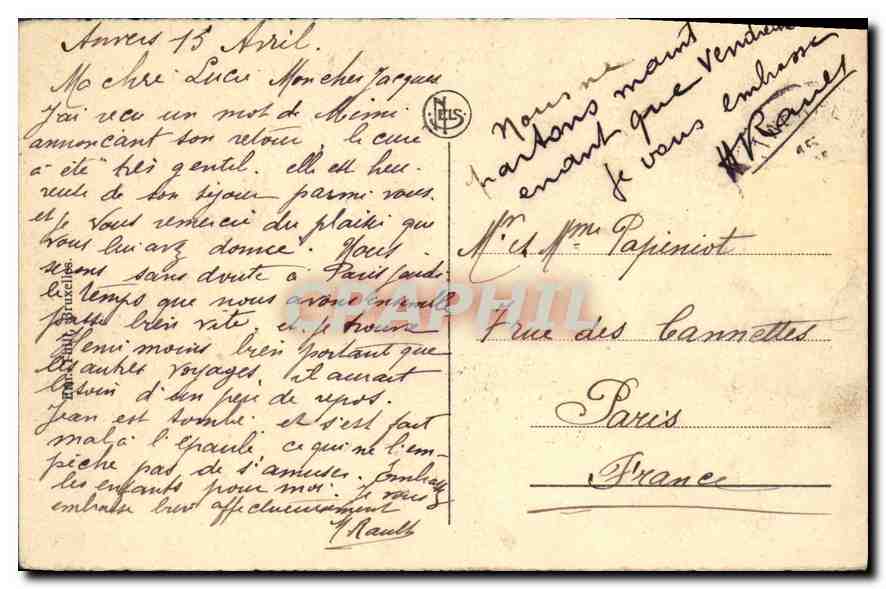 Anvers 15 Avril.
Ma chère Lucie Mon cher Jacques
J'ai recu un mot de Mimi
annoncant son retour, le cure
a été très gentil. elle est heu-
reuse de son séjour parmi vous.
et je vous remercie du plaisir que
vous lui avez donnée. Nous
serons sans doute à Paris Jeudi
le temps que nous avons ensemble
passe bien vite, et je trouve
Remi moins bien portant que
les autres voyages il aurait
besoin d'un peu de repos.
Jean est tombé et s'est fait
mal à l'épaule ce qui ne l'em-
pêche pas de s'amuser. Embrasse
les enfants pour moi. Je vous
embrasse bien affectueusement
Rault
NELS
Bruxelles.
Nous ne
partons maint
enant que vendredi
je vous embrasse
Mr et Mme Papeniot
7 rue des Cannettes
Paris
France
CPAPHIL